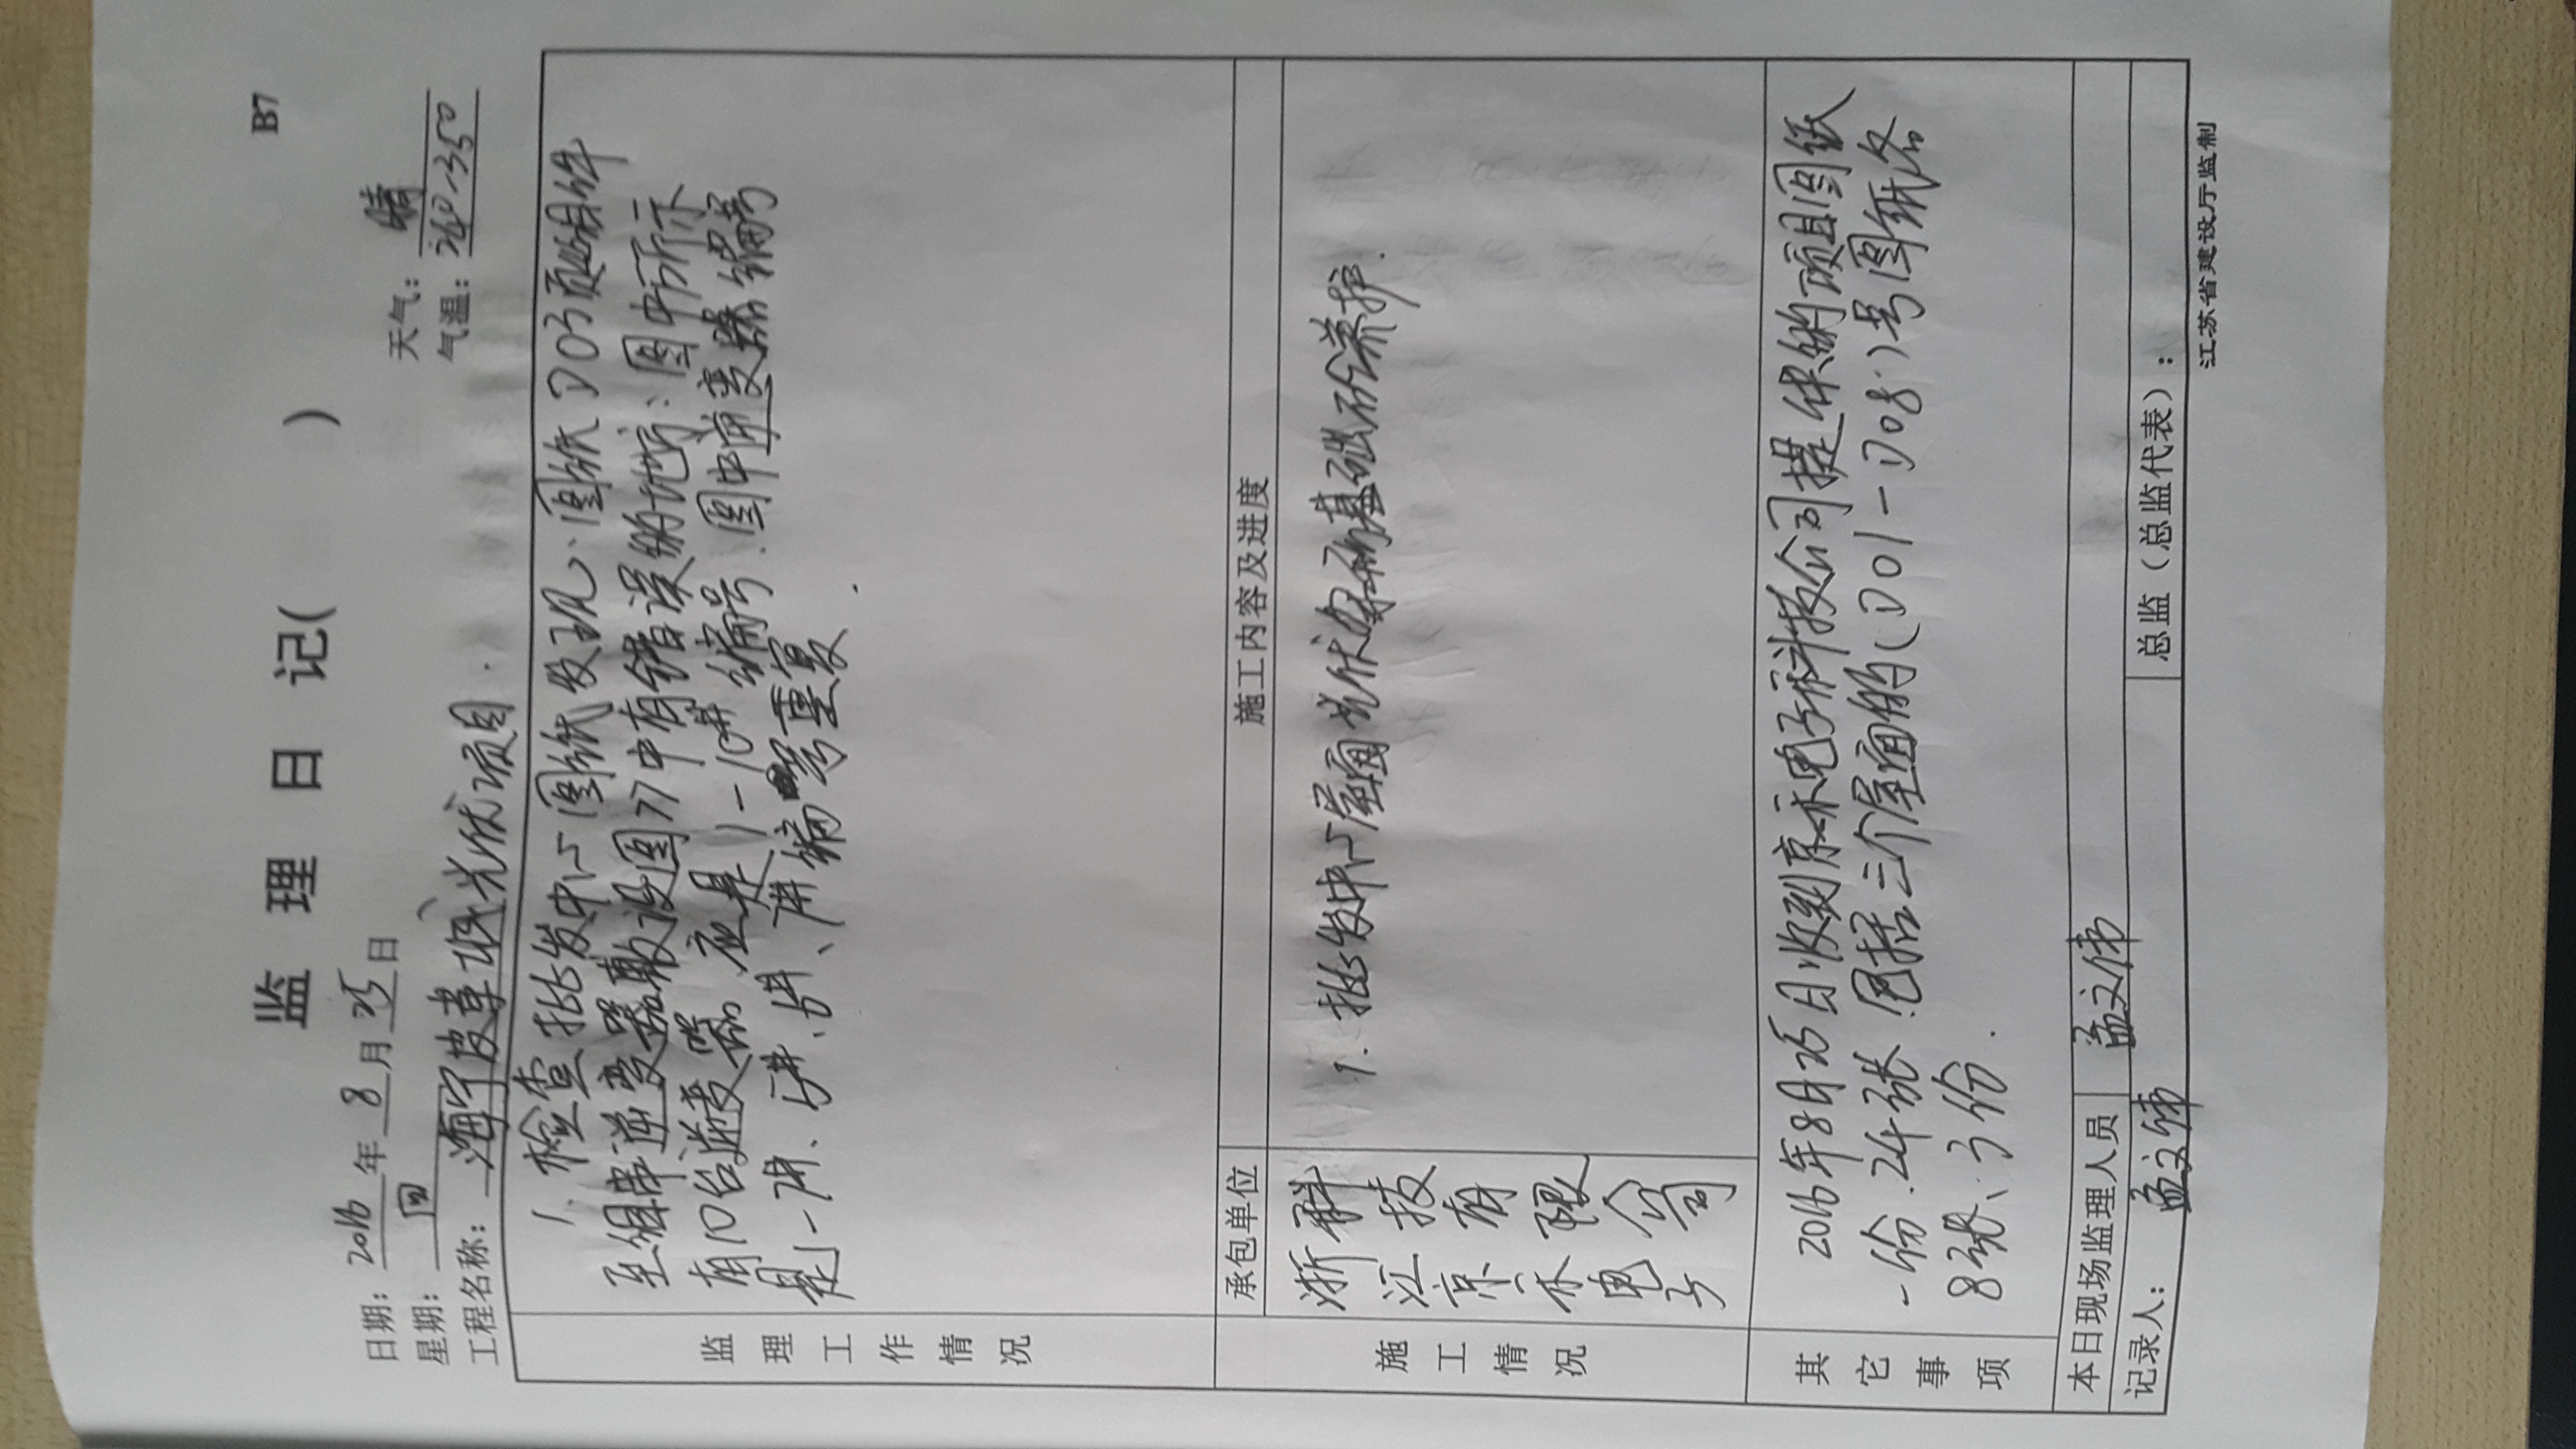 B7
监 理 日 记( )
日期: 2016 年 8 月 25 日 天气: 晴
星期: 四 气温: 26°~35°
工程名称: 海宁皮革城光伏项目.
监理工作情况
1、检查批发中心图纸发现:图纸D03页的组件
至组串逆变器敷设图纸中有错误的地方:图中所示
有10台逆变器 应是1-10# 编号.图中逆变器编号
是1-7#、5#、6#、7#编号重复.
承包单位 施工内容及进度
施工情况
浙江京禾电子科技有限公司
1. 批发中心屋面光伏支架的基础砼养护.
其它事项
2016年8月25日收到京禾电子科技公司提供的项目图纸
一份.24张.包括三个屋面的(D01-D08)号图纸各
8张、3份.
本日现场监理人员 孟文伟
记录人: 孟文伟 总监(总监代表):
江苏省建设厅监制